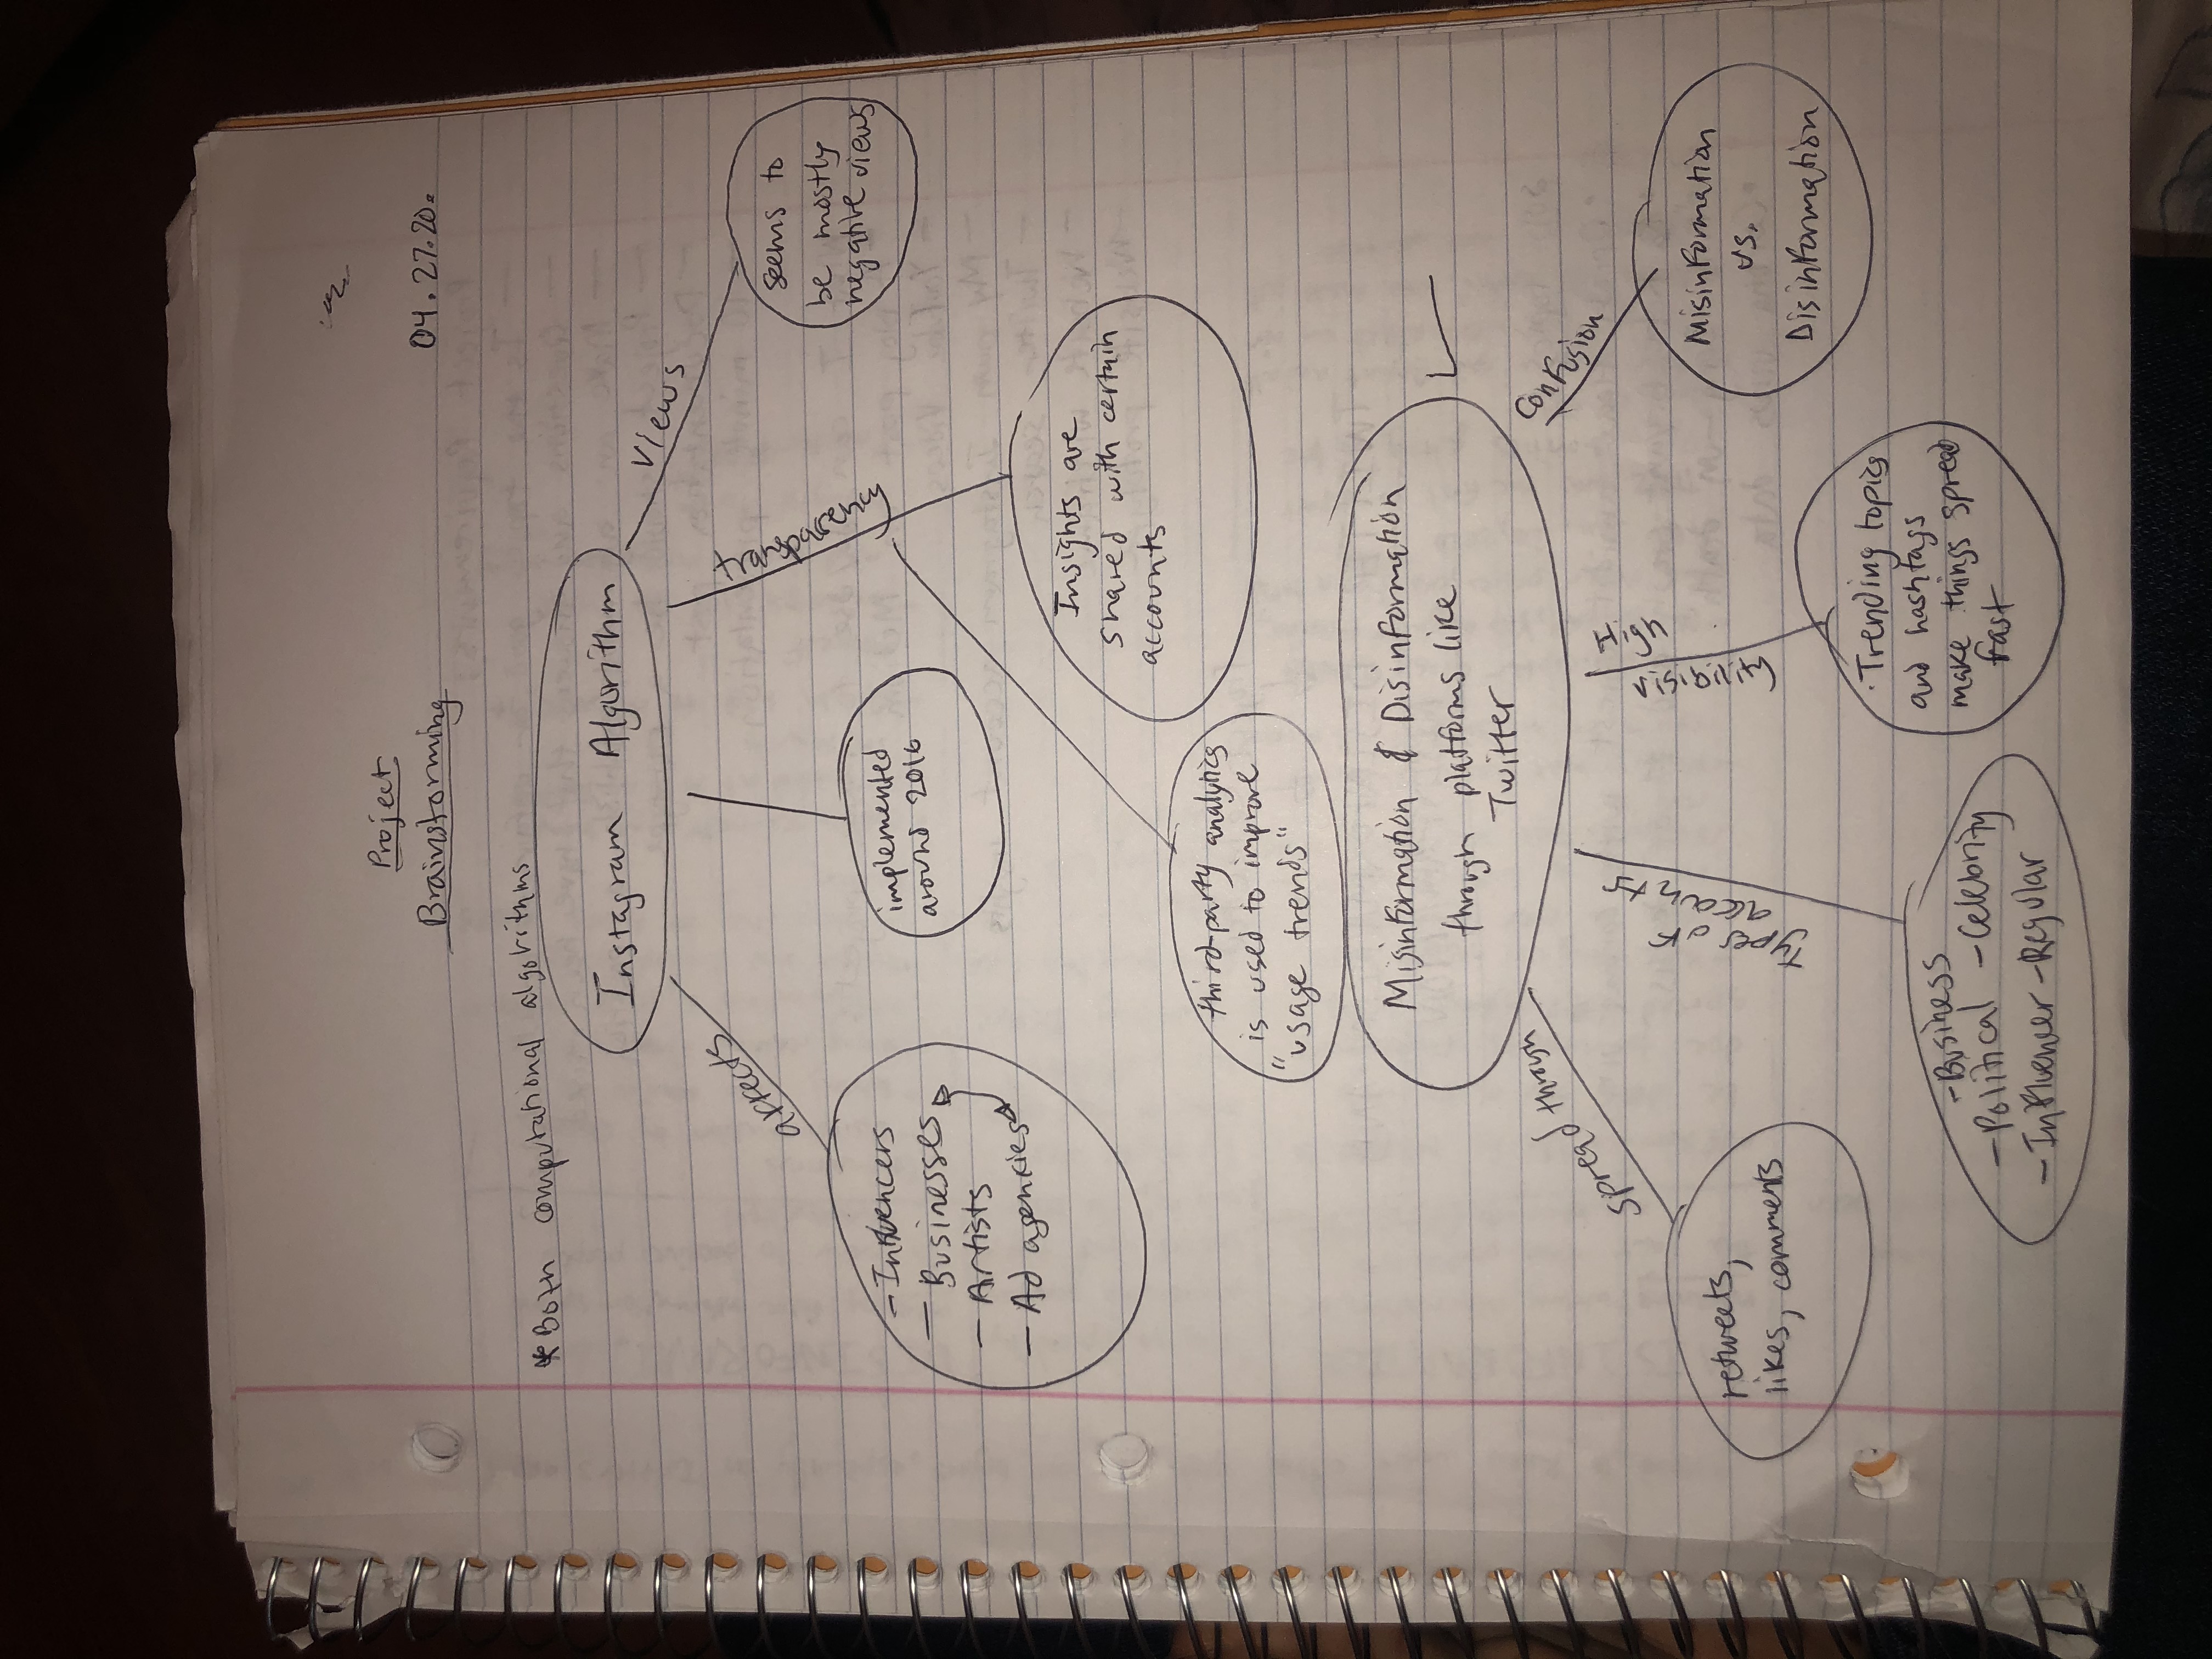 Project
Brainstorming
04.27.20.
*Both computational algorithms
Instagram Algorithm
affects
- Influencers
- Businesses
- Artists
- Ad agencies
implemented
around 2016
transparency
Insights are
shared with certain
accounts
third-party analytics
is used to improve
"usage trends"
views
seems to
be mostly
negative views
Misinformation & Disinformation
through platforms like
Twitter
spread through
retweets,
likes, comments
Types of
accounts
- Business
- Political - Celebrity
- Influencer - Regular
High
visibility
· Trending topics
and hashtags
make things spread
fast
confusion
Misinformation
vs.
Disinformation